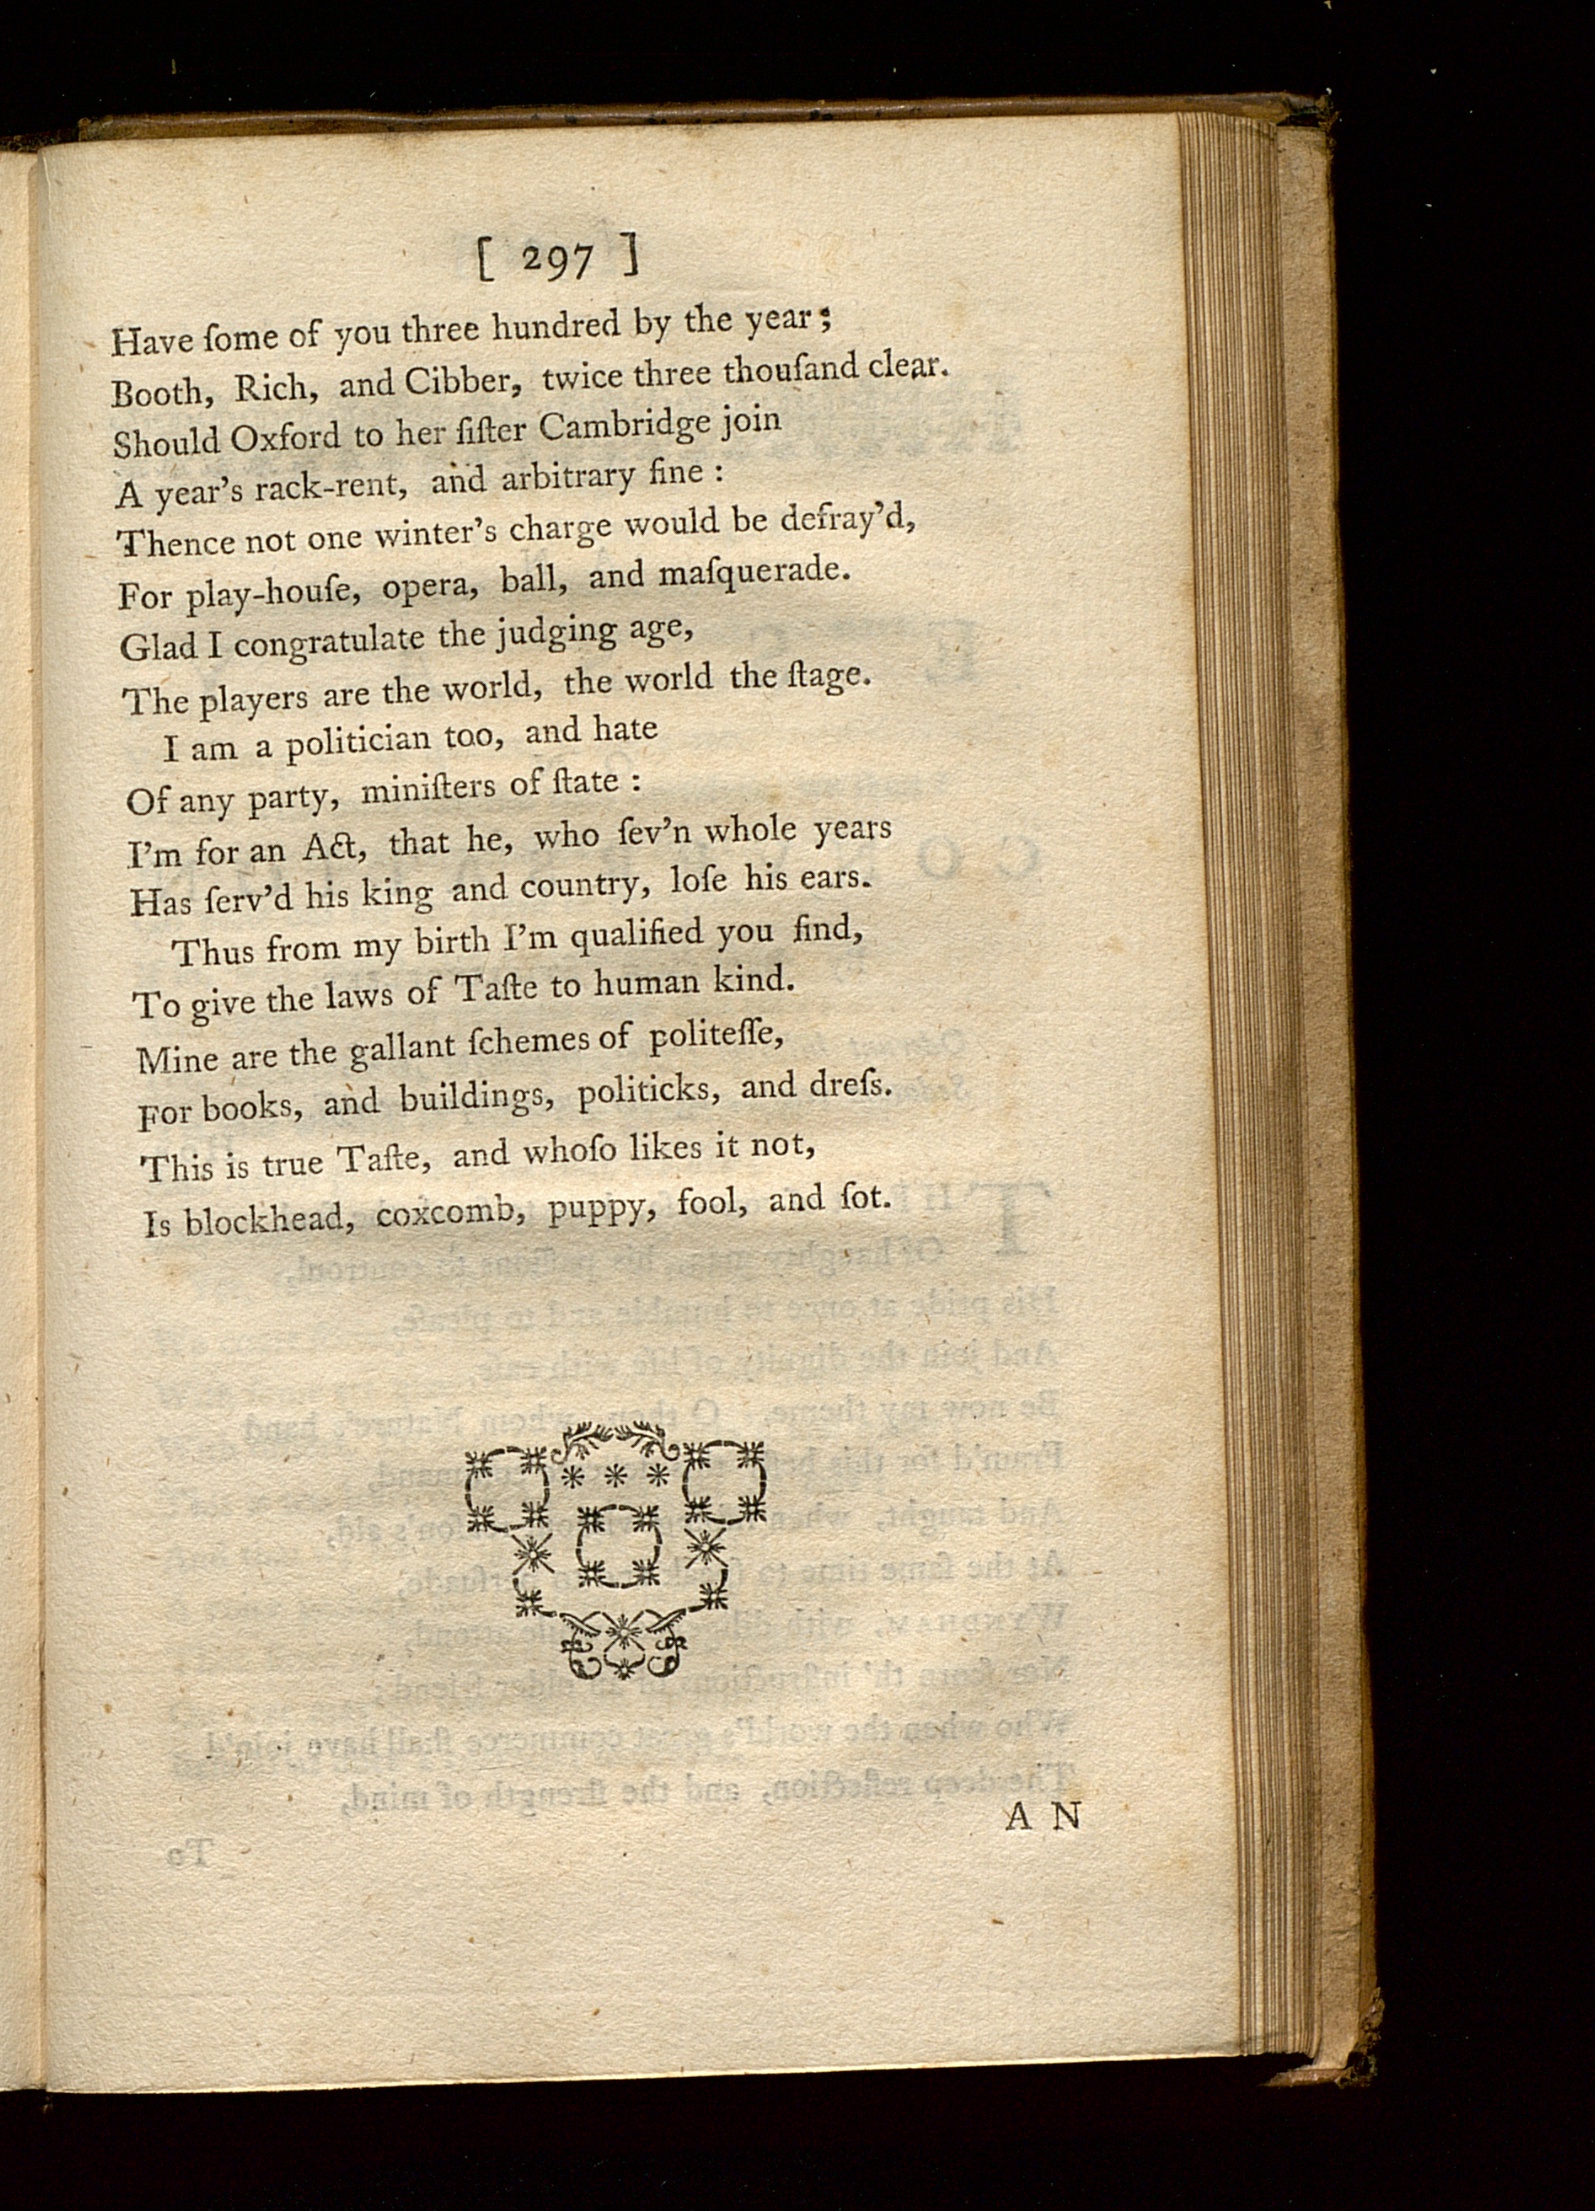 [ 297 ]
Have ſome of you three hundred by the year;
Booth, Rich, and Cibber, twice three thouſand clear.
Should Oxford to her ſiſter Cambridge join
A year's rack-rent, and arbitrary fine :
Thence not one winter's charge would be defray'd,
For play-houſe, opera, ball, and maſquerade.
Glad I congratulate the judging age,
The players are the world, the world the ſtage.
I am a politician too, and hate
Of any party, miniſters of ſtate :
I'm for an Act, that he, who ſev'n whole years
Has ſerv'd his king and country, loſe his ears.
Thus from my birth I'm qualified you find,
To give the laws of Taſte to human kind.
Mine are the gallant ſchemes of politeſſe,
For books, and buildings, politicks, and dreſs.
This is true Taſte, and whoſo likes it not,
Is blockhead, coxcomb, puppy, fool, and ſot.
A N